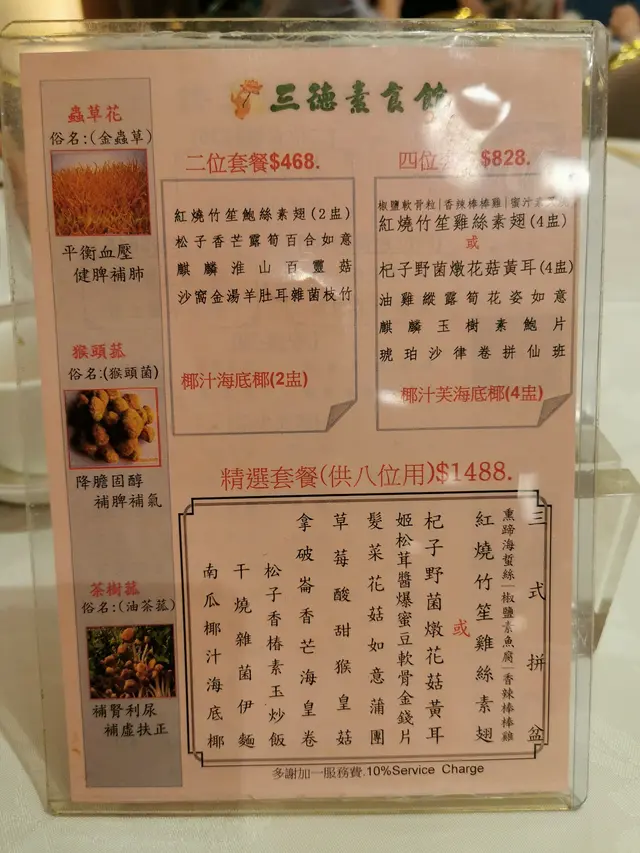 三德素食館
蟲草花
俗名:(金蟲草)
平衡血壓
健脾補肺
猴頭菰
俗名:(猴頭菌)
降膽固醇
補脾補氣
茶樹菰
俗名:(油茶菰)
補腎利尿
補虛扶正
二位套餐$468.
紅燒竹笙鮑絲素翅(2盅)
松子香芒露筍百合如意
麒麟淮山百靈菇
沙窩金湯羊肚耳雜菌枝竹
椰汁海底椰(2盅)
四位套 $828.
椒鹽軟骨粒|香辣棒棒雞|蜜汁素
紅燒竹笙雞絲素翅(4盅)
或
杞子野菌燉花菇黃耳(4盅)
油雞縱露筍花姿如意
麒麟玉樹素鮑片
琥珀沙律卷拼仙班
椰汁芙海底椰(4盅)
精選套餐(供八位用)$1488.
三式拼盆
熏蹄海蜇絲|椒鹽素魚腐|香辣棒棒雞
紅燒竹笙雞絲素翅
或
杞子野菌燉花菇黃耳
姬松茸醬爆蜜豆軟骨金錢片
髮菜花菇如意蒲團
草莓酸甜猴皇菇
拿破崙香芒海皇卷
松子香椿素玉炒飯
干燒雜菌伊麵
南瓜椰汁海底椰
多謝加一服務費.10%Service Charge